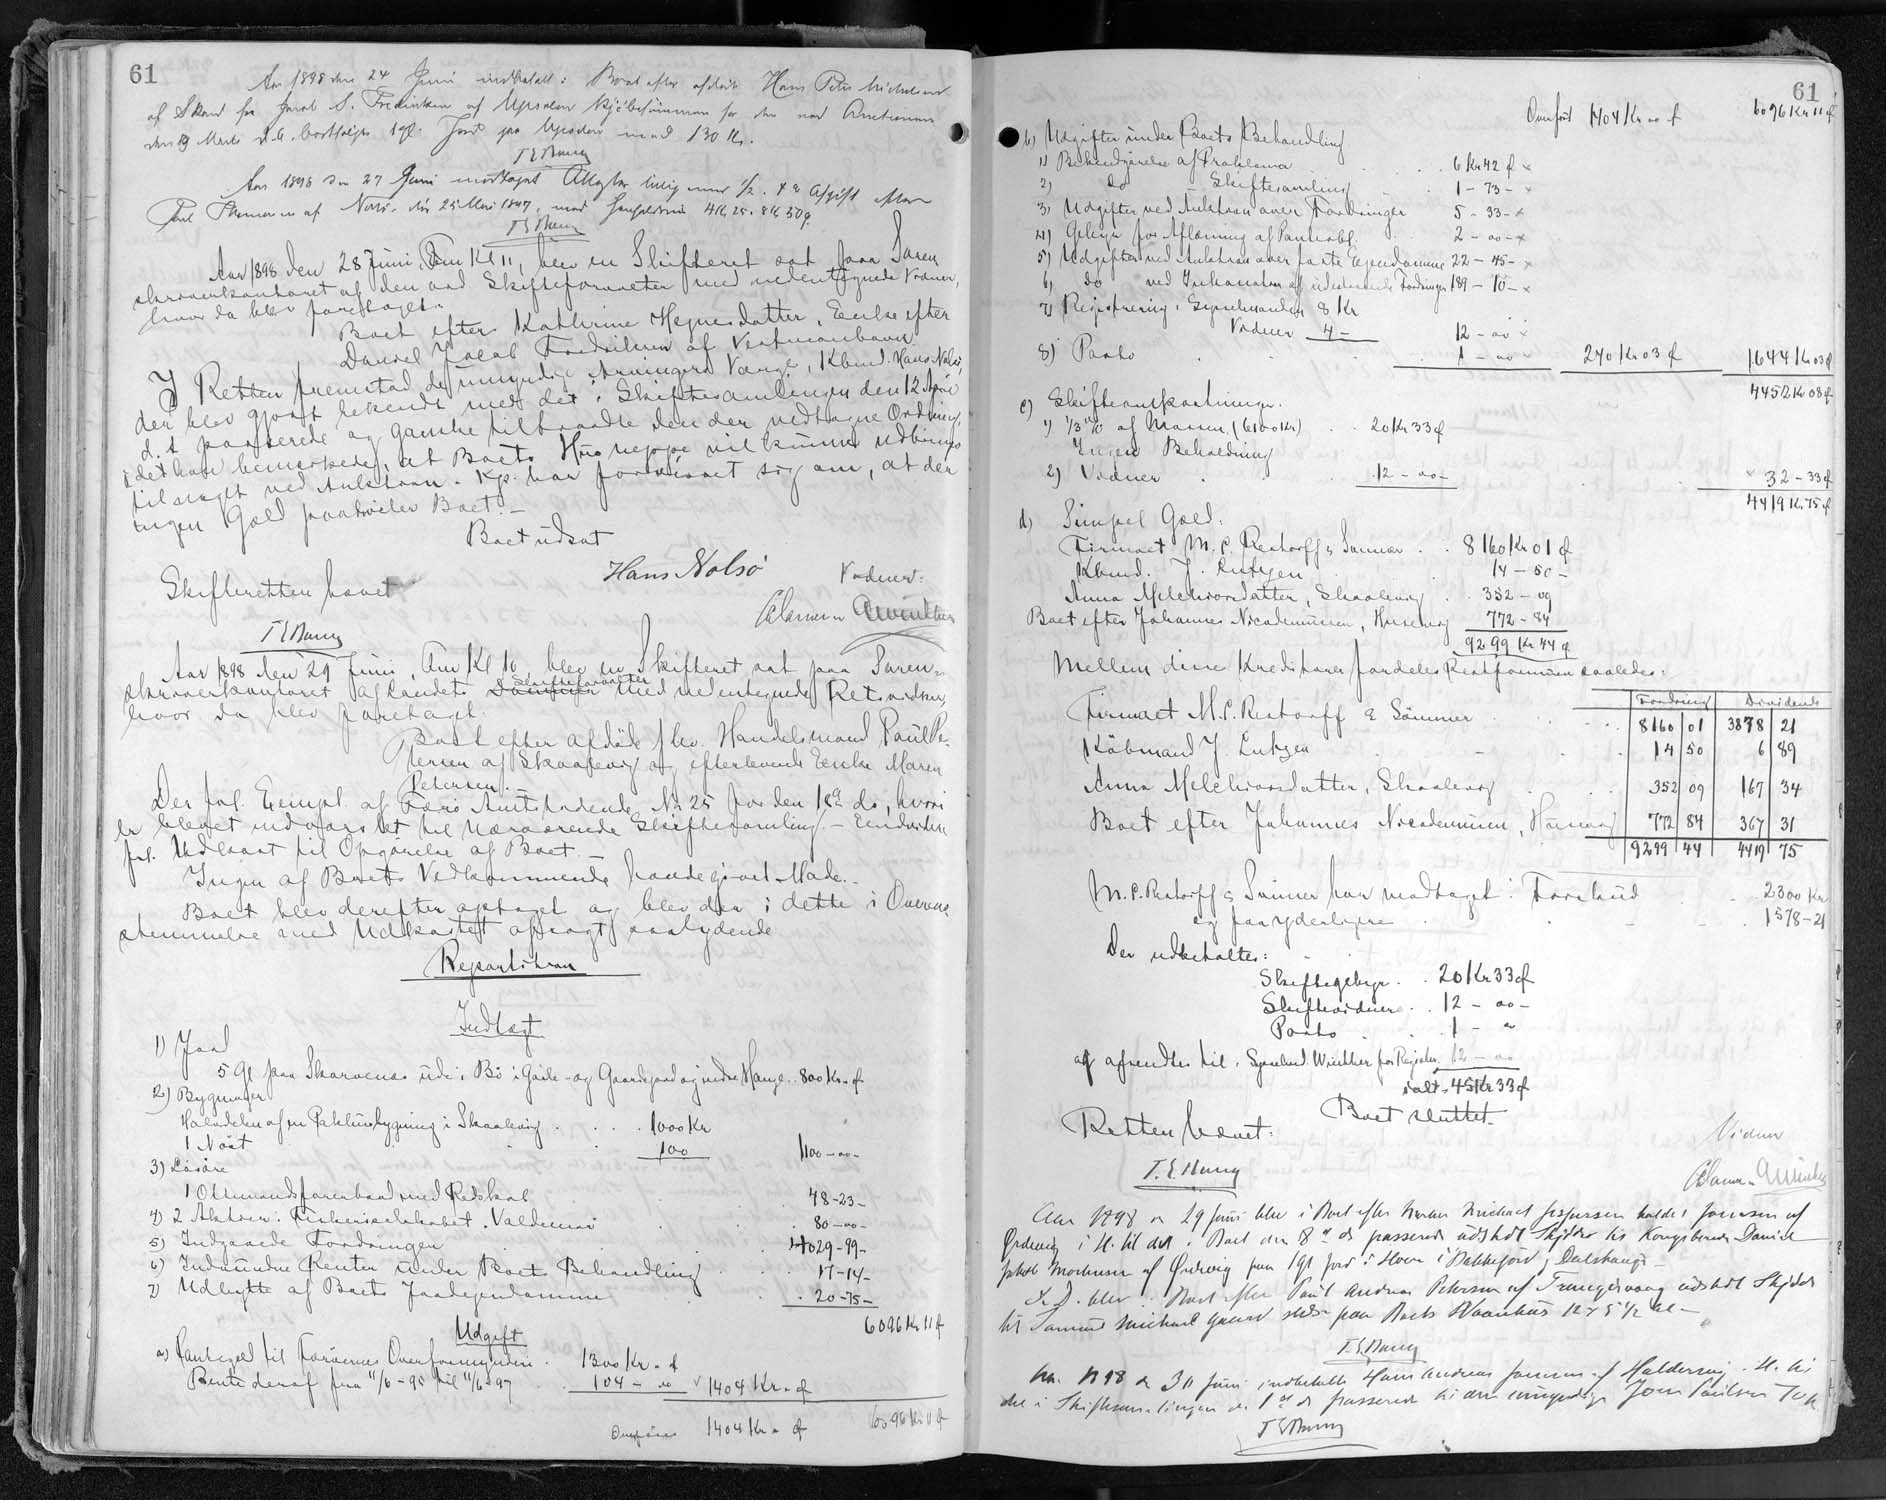 61
Aar 1898 den 24 Juni indbetalt: Boet efter afdøde Hans Peter Michelsen
af Skard for Jacob S. Fredriksen af Mijsalen Kjöbesummen for den ved Auctionen
den 19 Marts d. A. bortsolgte 1 gl. Jord paa Mijsalen med 130 Kr.
T E Bærug
Aar 1898 den 27 Juni modtaget
Poul Thomassen af dör 25 Mai 1897, med 4 Kr 25. 8 Kr 50 ø.
Aar 1898 den 28 Juni, Em Kl 11, blev en Skifteret sat paa Soren
skriverkontoret af den ord Skifteforvalter med nedentegnede Vidner,
hvor da blev foretaget:
Boet efter Kathrine Hejnesdatter, Enke efter
Daniel Jacob Fredriksen af Vestmanhavn.
I Retten fremstod de umyndige Arvingers Værge, Kbmd. Hans Nolsö,
der blev gjort bekendt med det i Skiftesamlingen den 12 April
d. A. passerede og ganske tiltraadte den der vedtagne Ordning,
idet han bemærkede, at Boets Hus neppe vil kunne udbringes
til noget ved Auktion. Kp. har forvisset sig om, at der
ingen Gæld paahviler Boet. -
Boet udsat
Skifteretten hævet
Hans Nolsö
Vidner:
Aar 1898 den 29 Juni, Em Kl 10, blev en Skifteret sat paa Soren-
skriverkontoret af Landets Skifteforvalter med nedentegnede Retsvidner,
hvor da blev foretaget:
Boet efter afdöde fhv. Handelsmand Poul Pe-
tersen af Skaalevig og efterlevende Enke Maren
Petersen. -
Der frl. Exempl. af Færö Amtstidende No 25 for den 18de ds, hvori
er blevet indvarslet til nærværende Skiftesamling. - Eendvidere
frl. Udkast til Opgørelse af Boet. -
Ingen af Boets Vedkommende havde givet Möde. -
Boet blev derefter optaget og blev der i dette i Overens-
stemmelse med Udkastet afsagt saalydende
Repartition
Indtægt
1) Jord
5 Gl paa Skarvenes ude i Bö i Gaile- og Gaardejord og nedre Hauge .. 800 Kr - ø
2) Bygninger
Halvdelen af en Pakhusbygning i Skaalevig . . . . 1000 Kr
1 Nöst . . . 100 1100 - 00 -
3) Lösöre
1 Ottemandsfarerbaad med Redskab . . . 48 - 23 -
4) 2 Aktier i Fiskeriselskabet "Valdemar" . . 80 - 00 -
5) Indgaaede Fordringer . . . 4029 - 99 -
6) Indvundne Renter under Boets Behandling . . . 17 - 14 -
7) Udbytte af Boets Jordejendomme . . . 20 - 75 -
6096 Kr 11 ø
Udgift
a) Pantegæld til Færöernes Overformynderi . 1300 Kr - ø
Rente deraf fra 11/6 - 95 til 11/6 - 97 . . 104 - 00 1404 Kr - ø
Overføres 1404 Kr - ø 6096 Kr 11 ø
61
Overfört 1404 Kr 00 ø 6096 Kr 11 ø
b) Udgifter under Boets Behandling
1) Bekendtgörelse af Proklama . . . 6 Kr 42 ø x
2) do - Skiftesamling . . 1 - 73 - x
3) Udgifter ved Auktion over Fordringer 5 - 33 - x
4) Gebyr for Aflæsning af Pantebl. . . 2 - 00 - x
5) Udgifter ved Auktion over faste Ejendomme 22 - 45 - x
6) do ved Inkassation af udestaaende Fordringer 189 - 10 - x
7) Registrering: Sysselmanden 8 Kr
Vidner 4 - 12 - 00 - x
8) Porto . . . 1 - 00 - 240 Kr 03 ø 1644 Kr 03 ø
4452 Kr 08 ø
c) Skifteomkostninger.
1) 1/3 % af Massen (6100 Kr) . . 20 Kr 33 ø
Ingen Beholdning
2) Vidner . . . 12 - 00 - 32 - 33 ø
4419 Kr. 75 ø
d) Simpel Gæld:
Firmaet M. C. Restorff & Sönner . . 8160 Kr 01 ø
Kbmd. J. Lützen . . 14 - 50 -
Anna Melchiorsdatter, Skaalevig . . 352 - 09
Boet efter Johannes Nicodemussen, Husevig 772 - 84
9299 Kr 44 ø
Mellem disse Kreditorer fordeles Restsummen saaledes:
Fordring Dividende
Firmaet M. C. Restorff & Sönner . . . 8160 01 3878 21
Köbmand J. Lützen . . . 14 50 6 89
Anna Melchiorsdatter, Skaalevig . . . 352 09 167 34
Boet efter Johannes Nicodemussen, Husevig 772 84 367 31
9299 44 4419 75
M. C. Restorff & Sönner har modtaget i Forskud . . 2300 Kr
og faar yderligere . . . 1578 - 21
Der udbetales:
Skiftegebyr . . 20 Kr 33 ø
Skiftevidner . . 12 - 00 -
Porto . . 1 - "
og afsendes til Sysselmd. Winther for Registr. 12 - 00
ialt. 45 Kr 33 ø
Boet sluttet.
Retten hævet:
Vidner
Aar 1898 d 29 Juni blev i Boet efter Michael Jespersen kaldet Joensen af
Ördevig i H. til det i Boet den 8de ds passerede udstedt Skjöde til Kongsbonde Daniel
Jakob Mortensen af Ördevig paa 1 gl Jord i
S. D. blev i Boet efter Poul Andreas Petersen af Trangisvaag udstedt Skjöde
til Samuel Michael paa Boets Vaanhus 12 x 5 1/2 Al -
Aar 1898 d 30 Juni indbetalte Hans Andreas Joensen af Haldersvig . H. til
det i Skiftesamlingen d. 1ste ds passerede til den umyndige